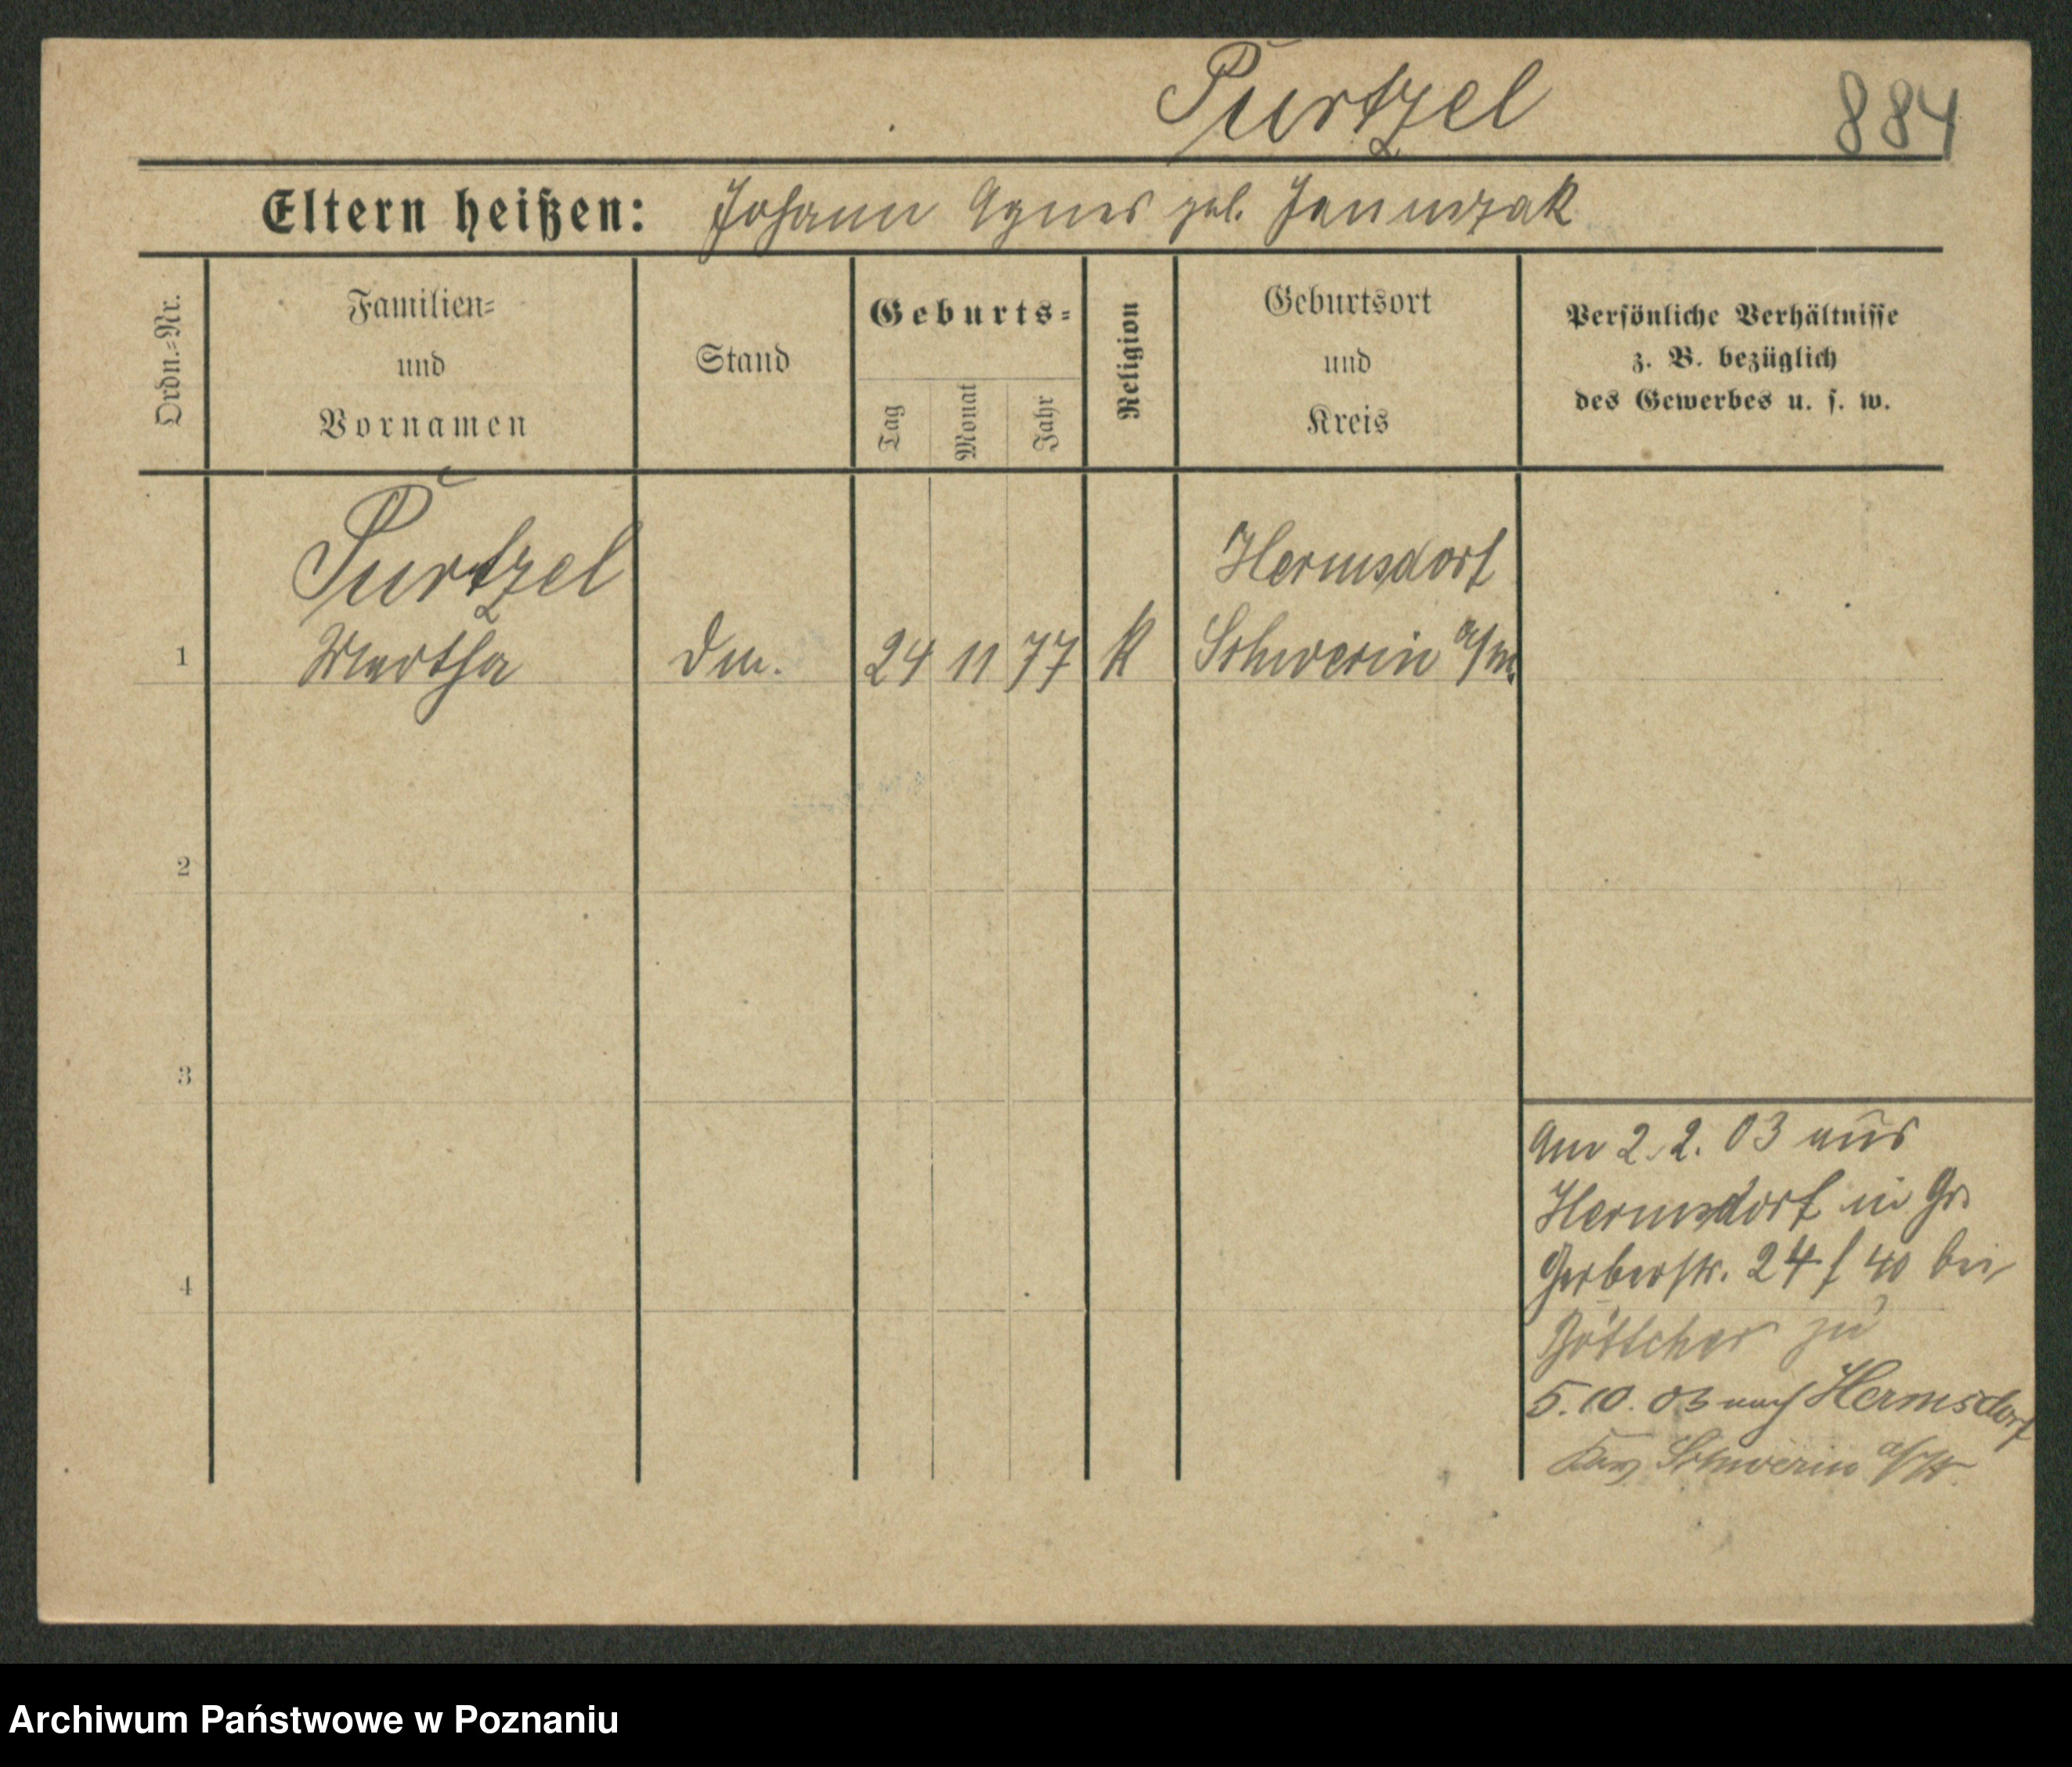 Purtzel 884
Eltern heißen: Johann Agnes geb.
Ordn.-Nr.
Familien-
und
Vornamen
Stand
Geburts-
Tag
Monat
Jahr
Religion
Geburtsort
und
Kreis
Persönliche Verhältnisse
z. B. bezüglich
des Gewerbes u. s. w.
Purtzel
Hermsdorf
1 Martha 24 11 77 K Schwerin a/W.
2
3
4
Am 2. 2. 03 aus
Hermsdorf in Gr.
Gerberstr. 24 f 40 bei
Böttcher zu
5. 10. 03 nach Hermsdorf
Schwerin a/W.
Archiwum Państwowe w Poznaniu